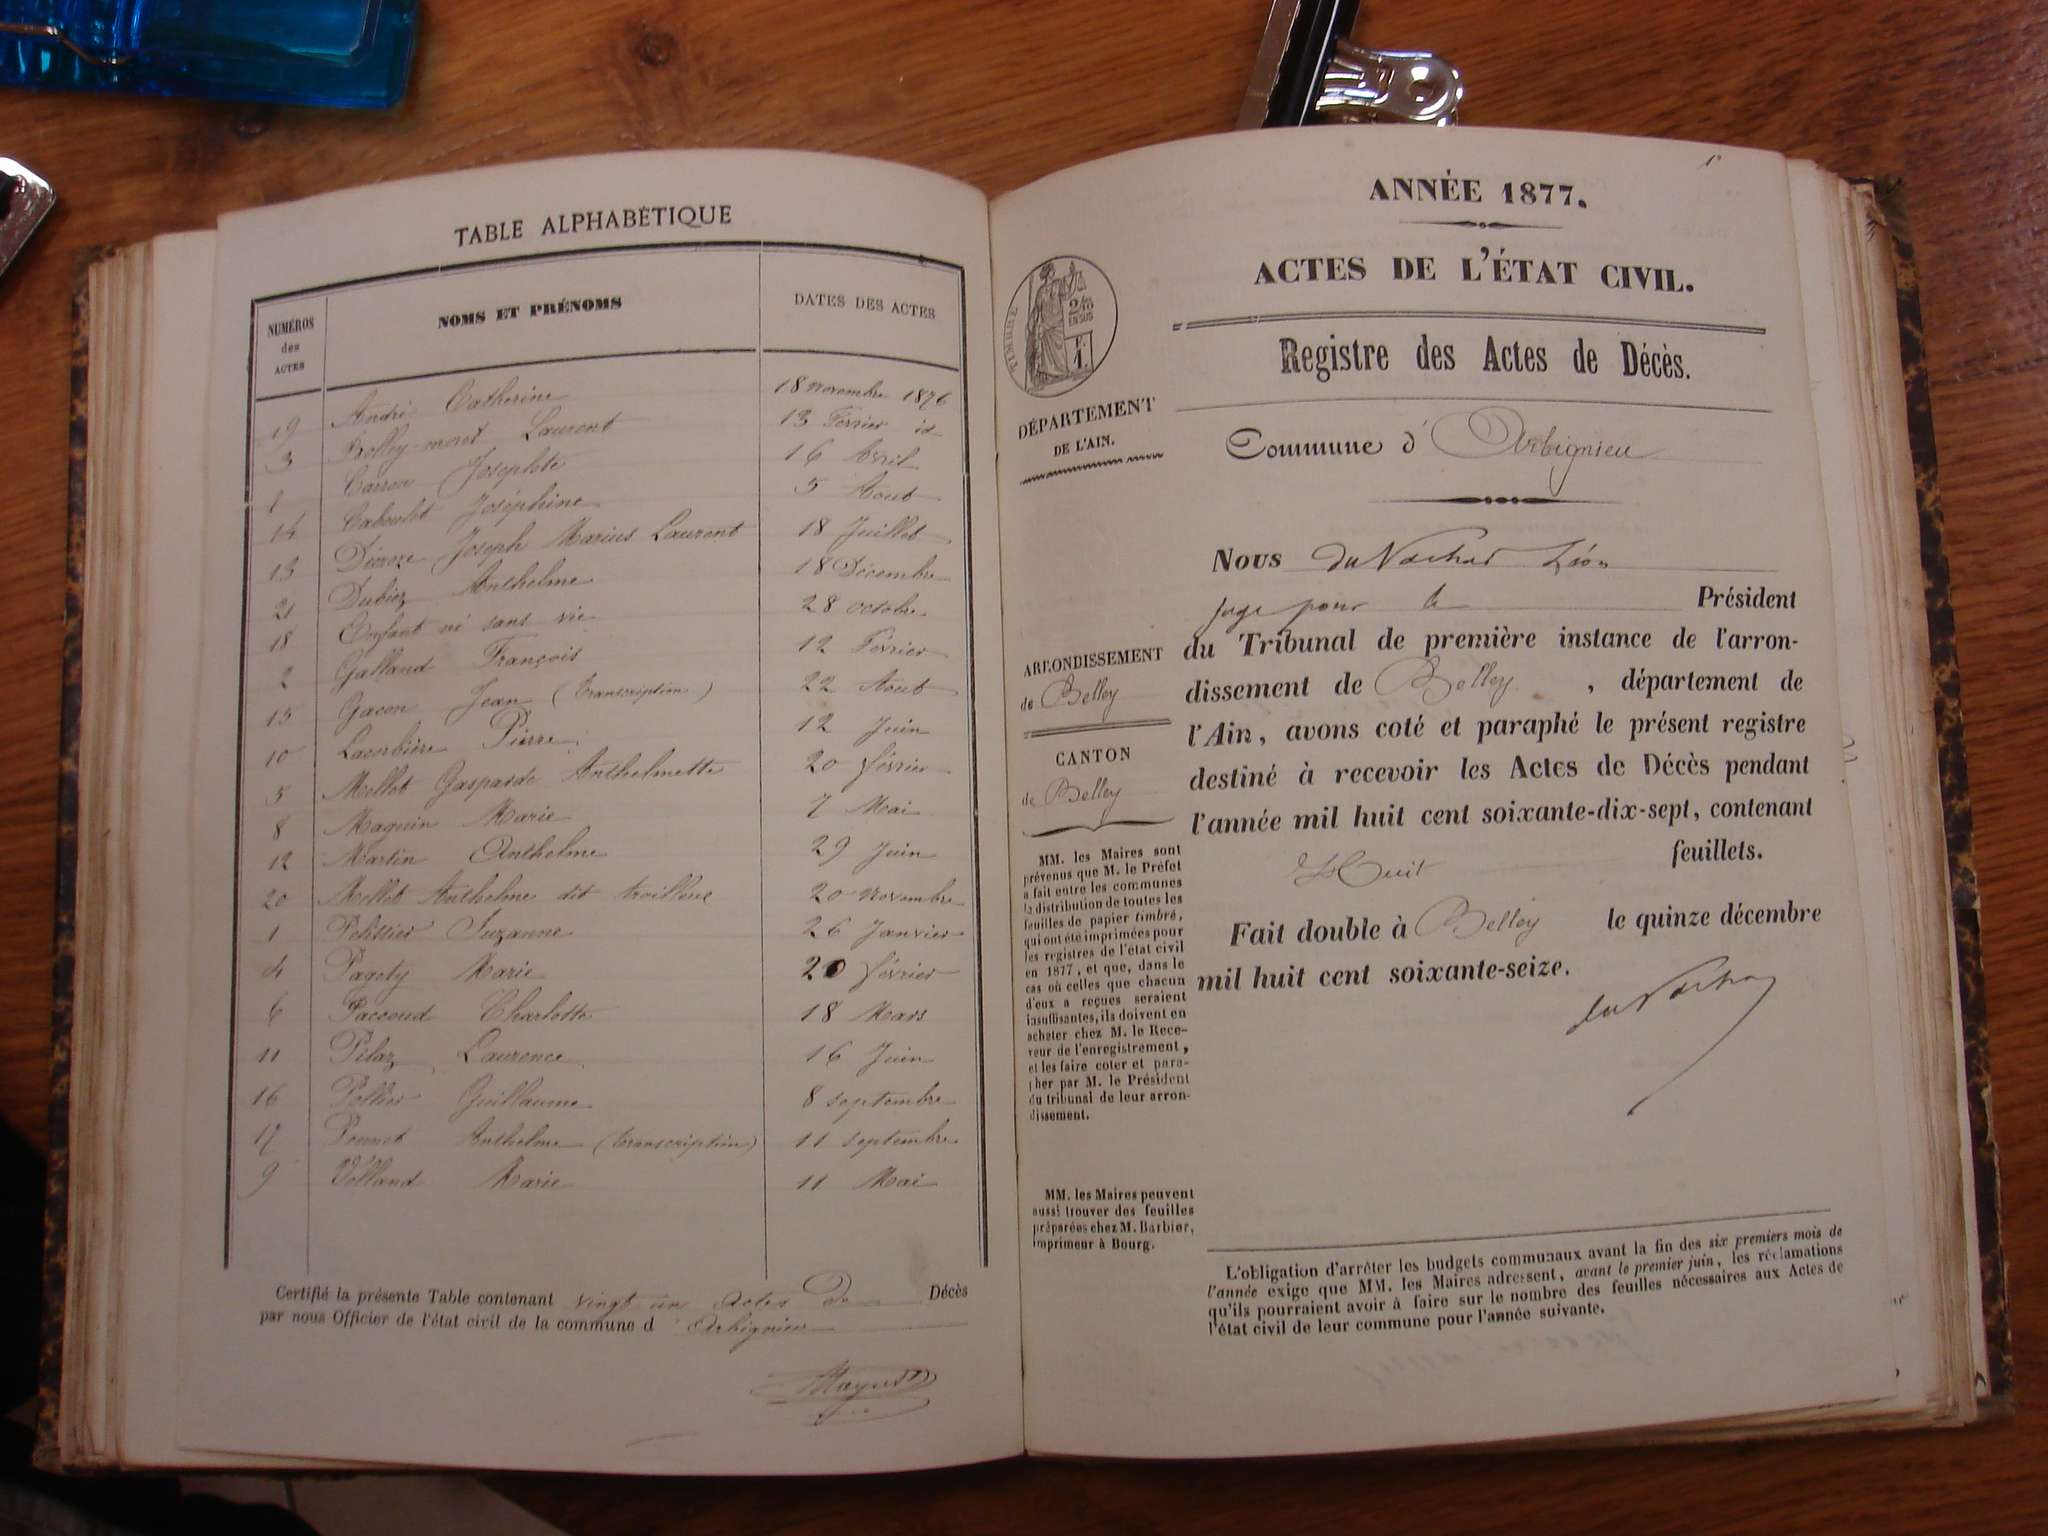 TABLE ALPHABÉTIQUE
NUMÉROS des ACTES
NOMS ET PRÉNOMS
DATES DES ACTES
19 André Catherine 18 novembre 1876
3 Belley-moret Laurent 13 Février id
Carron Josephte 16 Avril
14 Caboulet Joséphine 5 Aout
13 Décroze Joseph Marius Laurent 18 Juillet
21 Dubiez Anthelme 18 Décembre
18 Enfant né sans vie 28 octobre
2 Galland François 12 Février
15 Gacon Jean (Transcription) 22 Aout
10 Lacorbière Pierre 12 Juin
5 Mollet Gasparde Anthelmette 20 février
8 Magnin Marie 7 Mai
12 Martin Anthelme 29 Juin
20 Mollet Anthelme dit 20 novembre
1 Pelissier Suzanne 26 Janvier
4 Pagety Marie 20 février
6 Paccoud Charlotte 18 Mars
11 Pilaz Laurence 16 Juin
16 Pollier Guillaume 8 septembre
17 Ponnet Anthelme (transcription) 11 septembre
9 Volland Marie 11 Mai
Certifié la présente Table contenant vingt un actes de Décès
par nous Officier de l'état civil de la commune d Arbignieu
1e
ANNÉE 1877.
ACTES DE L'ÉTAT CIVIL.
Registre des Actes de Décès.
TIMBRE
2/10
EN SUS
F.
1.
DÉPARTEMENT
DE L'AIN.
Commune d' Arbignieu
Nous du Nachat Léon
juge pour le Président
du Tribunal de première instance de l'arron-
dissement de Belley , département de
l'Ain, avons coté et paraphé le présent registre
destiné à recevoir les Actes de Décès pendant
l'année mil huit cent soixante-dix-sept, contenant
Huit feuillets.
Fait double à Belley le quinze décembre
mil huit cent soixante-seize.
ARRONDISSEMENT
de Belley
CANTON
de Belley
MM. les Maires sont
prévenus que M. le Préfet
a fait entre les communes
la distribution de toutes les
feuilles de papier timbré,
qui ont été imprimées pour
les registres de l'état civil
en 1877, et que, dans le
cas où celles que chacun
d'eux a reçues seraient
insuffisantes, ils doivent en
acheter chez M. le Rece-
veur de l'enregistrement,
et les faire coter et para-
pher par M. le Président
du tribunal de leur arron-
dissement.
MM. les Maires peuvent
aussi trouver des feuilles
préparées chez M. Barbier,
imprimeur à Bourg.
L'obligation d'arrêter les budgets communaux avant la fin des six premiers mois de
l'année exige que MM. les Maires adressent, avant le premier juin, les réclamations
qu'ils pourraient avoir à faire sur le nombre des feuilles nécessaires aux Actes de
l'état civil de leur commune pour l'année suivante.